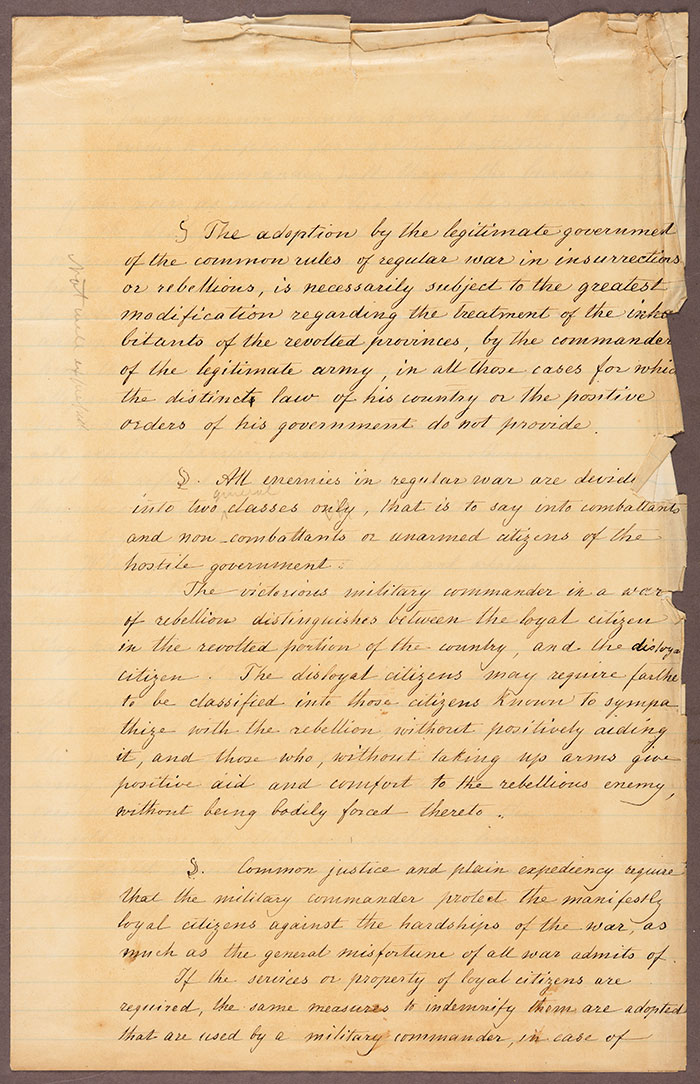 § The adoption by the legitimate government
of the common rules of regular war in insurrections
or rebellions, is necessarily subject to the greatest
modification regarding the treatment of the inha
bitants of the revolted provinces, by the commander
of the legitimate army, in all those cases for which
the distinct law of his country or the positive
orders of his government do not provide.
Not well expressed
§. All enemies in regular war are divide
general
into two classes only, that is to say into combattants
and non-combattants or unarmed citizens of the
hostile government.
The victorious military commander in a war
of rebellion distinguishes between the loyal citizen
in the revolted portion of the country, and the disloya
citizen. The disloyal citizens may require farthe
to be classified into those citizens known to sympa
thize with the rebellion without positively aiding
it, and those who, without taking up arms give
positive aid and comfort to the rebellious enemy,
without being bodily forced thereto.
§. Common justice and plain expediency require
that the military commander protect the manifestly
loyal citizens against the hardships of the war, as
much as the general misfortune of all war admits of.
If the services or property of loyal citizens are
required, the same measures to indemnify them are adopted
that are used by a military commander, in case of